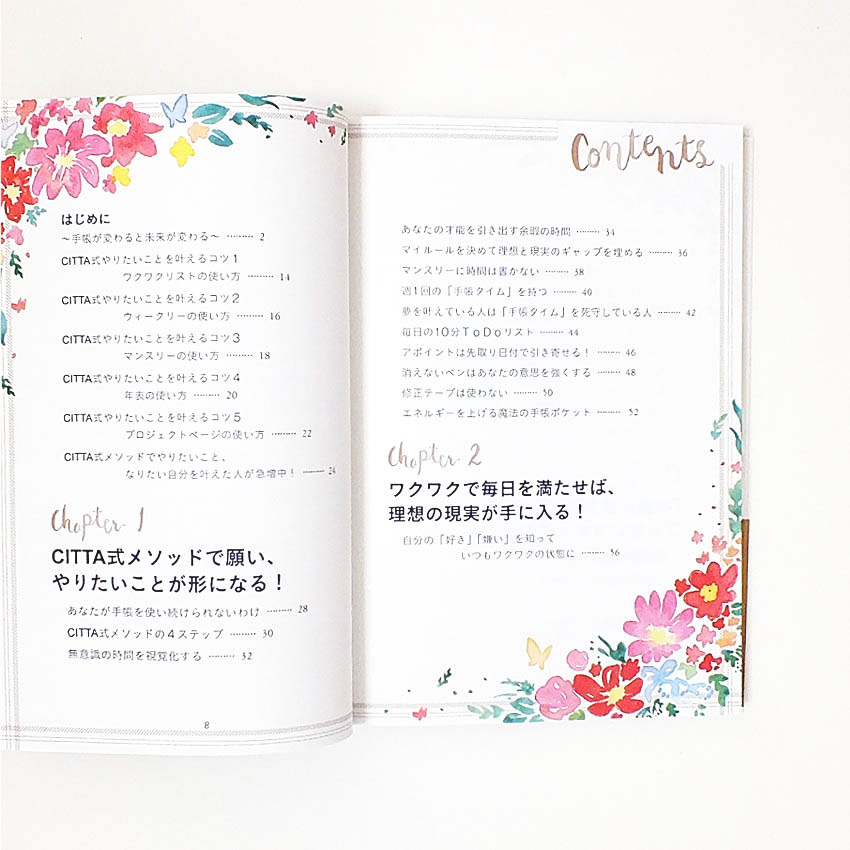 はじめに
～手帳が変わると未来が変わる～ ……… 2
CITTA式やりたいことを叶えるコツ1
ワクワクリストの使い方 ……… 14
CITTA式やりたいことを叶えるコツ2
ウィークリーの使い方 ……… 16
CITTA式やりたいことを叶えるコツ3
マンスリーの使い方 ……… 18
CITTA式やりたいことを叶えるコツ4
年表の使い方 ……… 20
CITTA式やりたいことを叶えるコツ5
プロジェクトページの使い方 ……… 22
CITTA式メソッドでやりたいこと、
なりたい自分を叶えた人が急増中！ ……… 24
Chapter. 1
CITTA式メソッドで願い、
やりたいことが形になる！
あなたが手帳を使い続けられないわけ ……… 28
CITTA式メソッドの4ステップ ……… 30
無意識の時間を視覚化する ……… 32
8
Contents
あなたの才能を引き出す余暇の時間 ……… 34
マイルールを決めて理想と現実のギャップを埋める ……… 36
マンスリーに時間は書かない ……… 38
週1回の「手帳タイム」を持つ ……… 40
夢を叶えている人は「手帳タイム」を死守している人 ……… 42
毎日の10分ToDoリスト ……… 44
アポイントは先取り日付で引き寄せる！ ……… 46
消えないペンはあなたの意思を強くする ……… 48
修正テープは使わない ……… 50
エネルギーを上げる魔法の手帳ポケット ……… 52
Chapter. 2
ワクワクで毎日を満たせば、
理想の現実が手に入る！
自分の「好き」「嫌い」を知って
いつもワクワクの状態に ……… 56